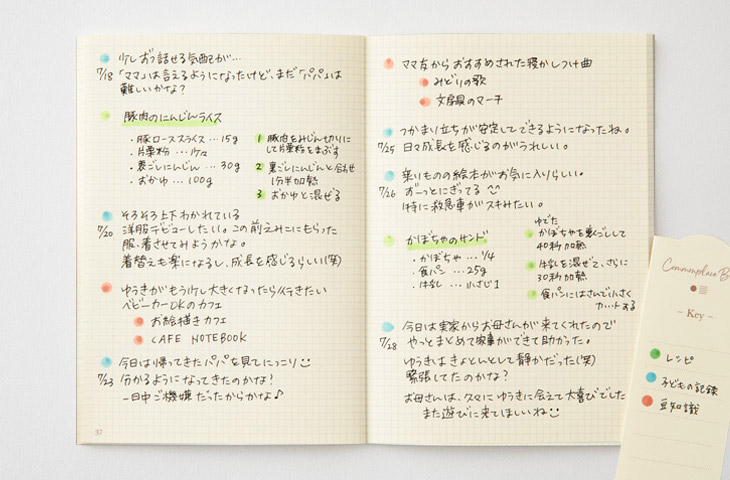 少しずつ話せる気配が…
7/18 「ママ」は言えるようになったけど、まだ「パパ」は
難しいかな?
豚肉のにんじんライス
・豚ローススライス…15g
・片栗粉…少々
・裏ごしにんじん…30g
・おかゆ…100g
1 豚肉をみじん切りに
して片栗粉をまぶす
2 裏ごしにんじんと合わせ
1分半加熱
3 おかゆと混ぜる
そろそろ上下わかれている
7/20 洋服デビューしたい。この前えみこにもらった
服、着させてみようかな。
着替えも楽になるし、成長を感じるらしい(笑)
ゆうきがもう少し大きくなったら行きたい
ベビーカーOKのカフェ
お絵描きカフェ
CAFE NOTEBOOK
今日は帰ってきたパパを見てにっこり
7/23 分かるようになってきたのかな?
一日中ご機嫌だったからかな♪
37
ママ友からおすすめされた寝かしつけ曲
みどりの歌
文房具のマーチ
つかまり立ちが安定してできるようになったね。
7/25 日々成長を感じるのがうれしい。
乗りもの絵本がお気に入りらしい。
7/26 ずーっとにぎってる
特に救急車がスキみたい。
かぼちゃのサンド
・かぼちゃ…1/4
・食パン…25g
・牛乳…小さじ1
ゆでた
かぼちゃを裏ごしして
40秒加熱
牛乳を混ぜて、さらに
30秒加熱
食パンにはさんで小さく
カットする
今日は実家からお母さんが来てくれたので
7/28 やっとまとめて家事ができて助かった。
ゆうきはきょとんとして静かだった(笑)
緊張してたのかな?
お母さんは、久々にゆうきに会えて大喜びでした
また遊びに来てほしいね
Commonplace B
- Key -
レシピ
子どもの記録
豆知識